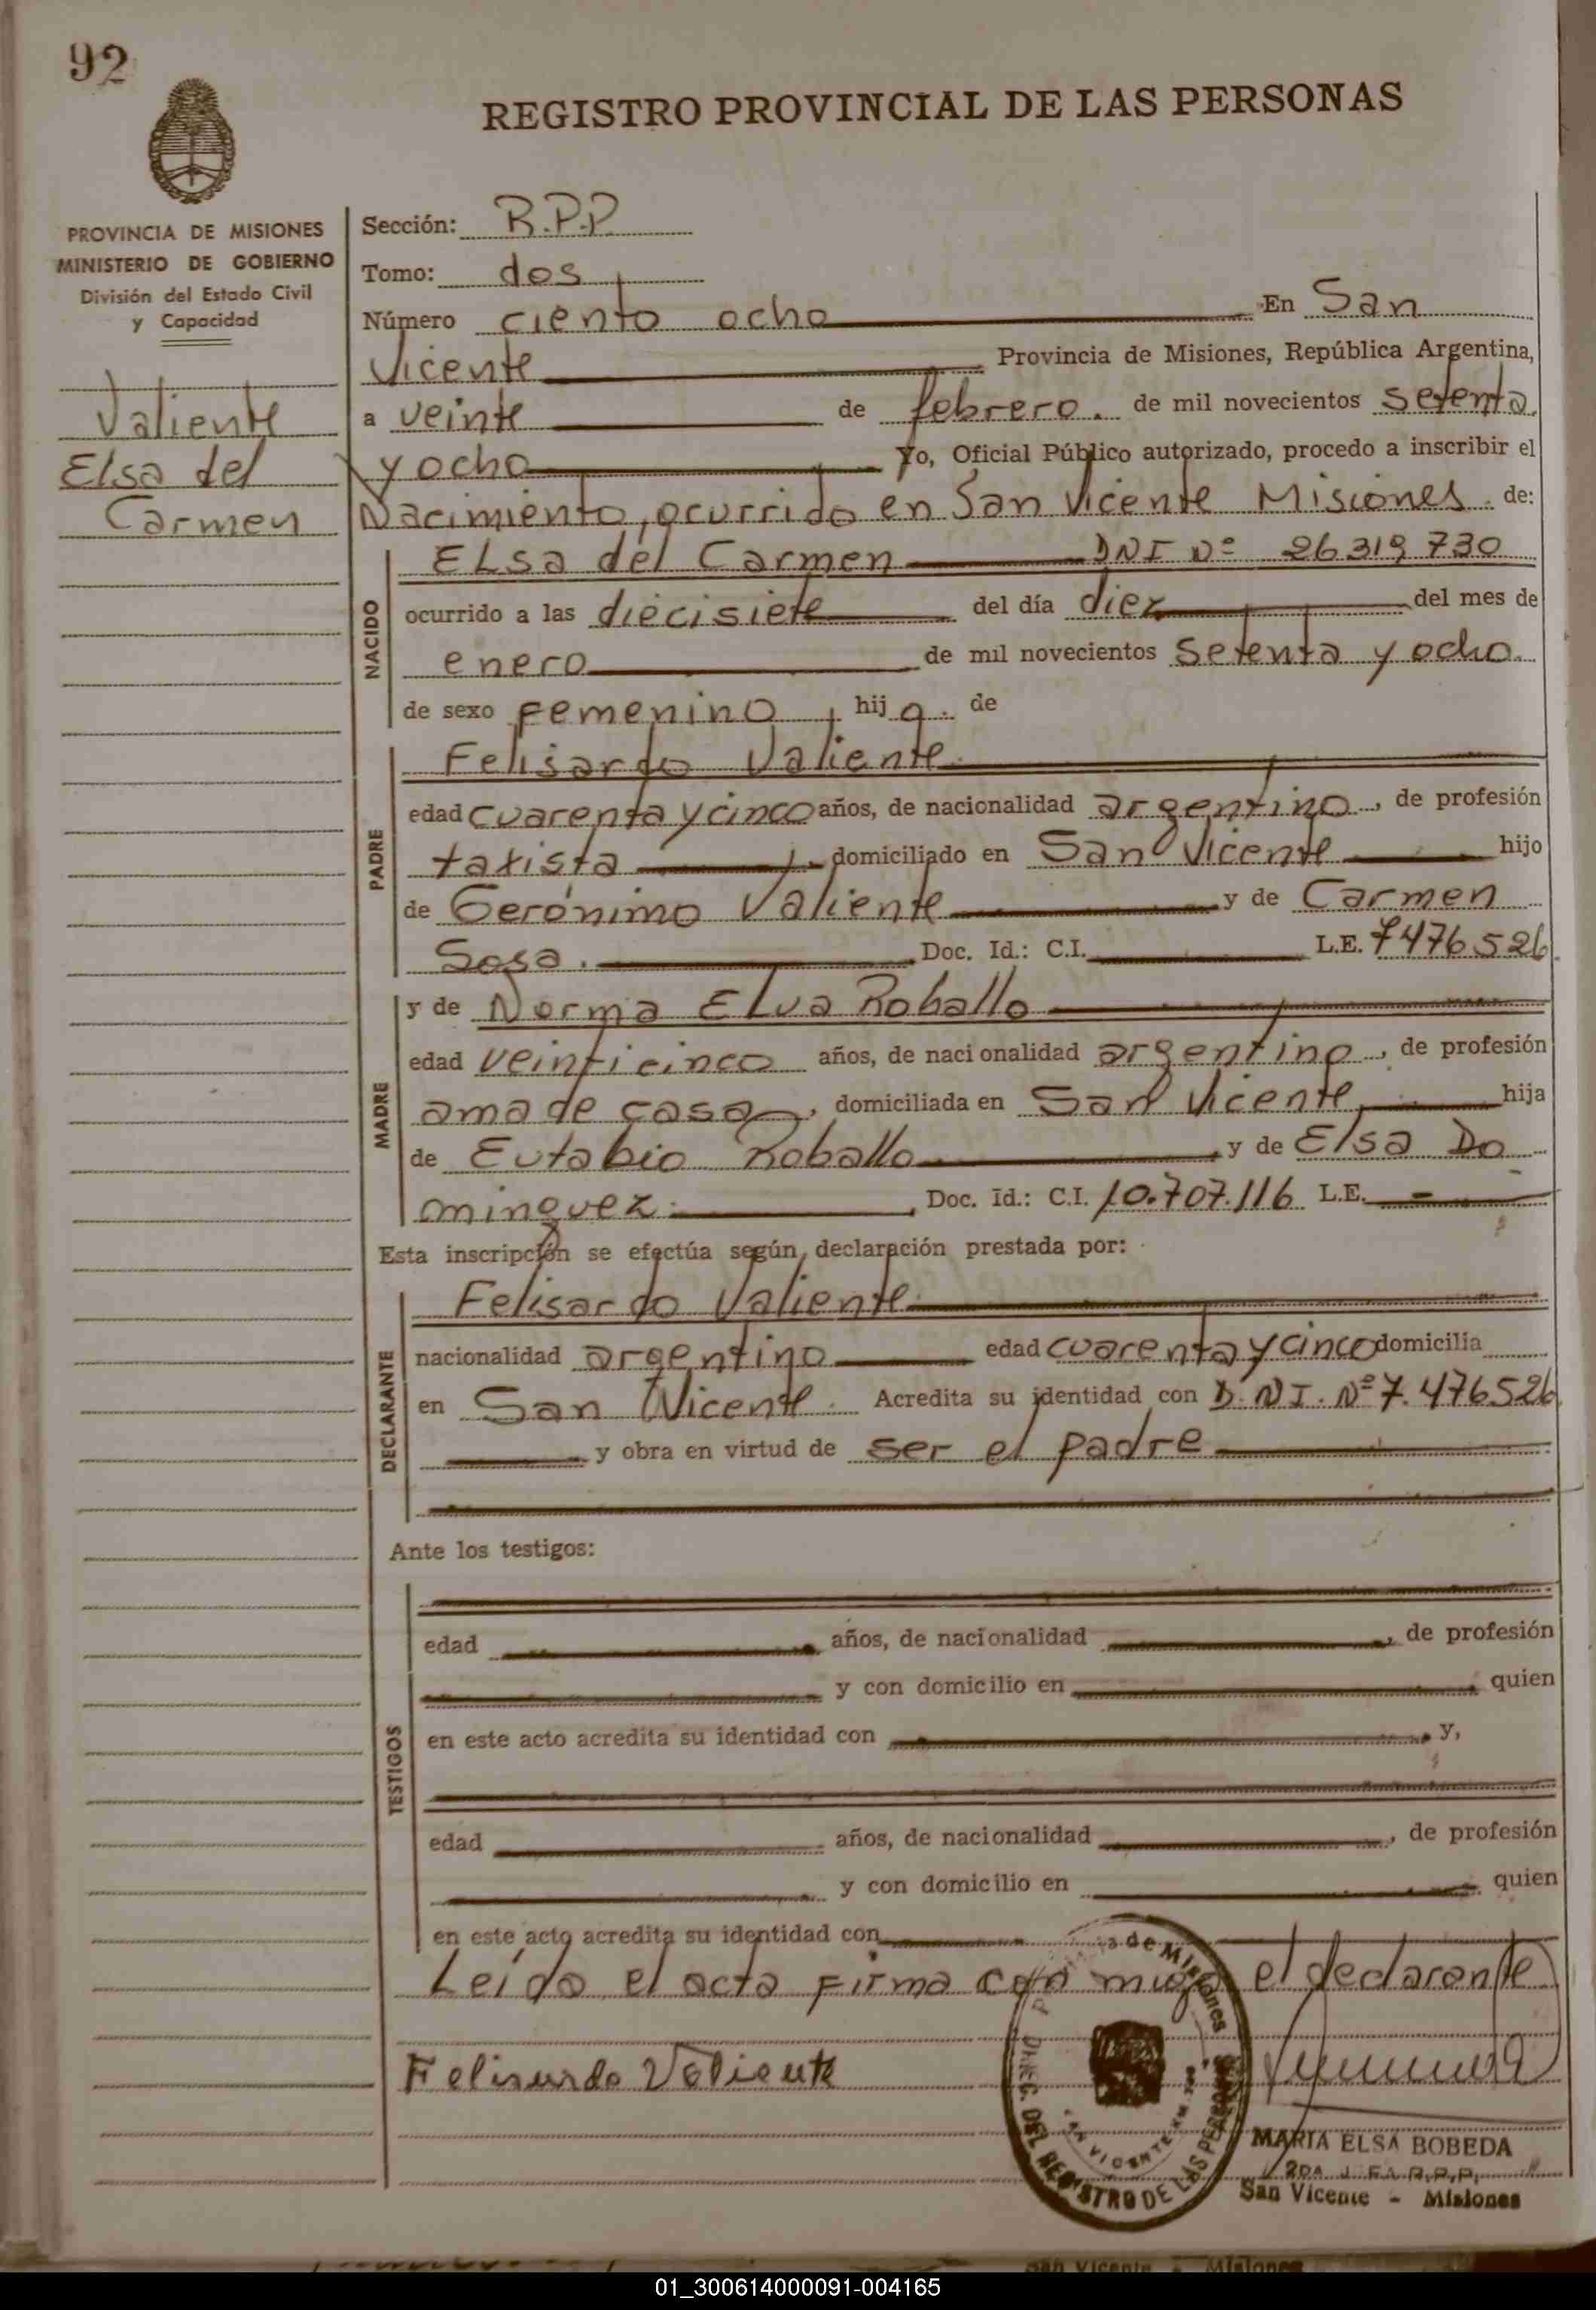 92
REGISTRO PROVINCIAL DE LAS PERSONAS
PROVINCIA DE MISIONES
MINISTERIO DE GOBIERNO
División del Estado Civil
y Capacidad
Valiente
Elsa del
Carmen
Sección: R.P.P.
Tomo: dos
Número ciento ocho En San
Vicente Provincia de Misiones, República Argentina,
a veinte de febrero. de mil novecientos setenta
y ocho Yo, Oficial Público autorizado, procedo a inscribir el
Nacimiento, ocurrido en San Vicente Misiones. de:
NACIDO
Elsa del Carmen DNI Nº 26.319.730
ocurrido a las diecisiete del día diez del mes de
enero de mil novecientos setenta y ocho.
de sexo femenino, hija. de
PADRE
Felisardo Valiente.
edad cuarenta y cinco años, de nacionalidad argentino, de profesión
taxista, domiciliado en San Vicente hijo
de Gerónimo Valiente y de Carmen
Sosa. Doc. Id.: C.I. L.E. 7476526
MADRE
y de Norma Elva Roballo
edad veinticinco años, de nacionalidad argentina, de profesión
ama de casa, domiciliada en San Vicente, hija
de Eutabio Roballo, y de Elsa Do
minguez. Doc. Id.: C.I. 10.707.116 L.E. -
Esta inscripción se efectúa según declaración prestada por:
DECLARANTE
Felisardo Valiente.
nacionalidad argentino edad cuarenta y cinco domicilia
en San Vicente. Acredita su identidad con D.N.I. Nº 7.476526
y obra en virtud de ser el padre
Ante los testigos:
TESTIGOS
edad años, de nacionalidad , de profesión
y con domicilio en quien
en este acto acredita su identidad con y,
edad años, de nacionalidad , de profesión
y con domicilio en quien
en este acto acredita su identidad con
Leído el acta firma con migo el declarante
Felisardo Valiente
de Misiones
DIREC. DEL REGISTRO DE LAS PERSONAS
SAN VICENTE
MARIA ELSA BOBEDA
2DA JEFA R.P.P.
San Vicente - Misiones
San Vicente - Misiones
01_300614000091-004165